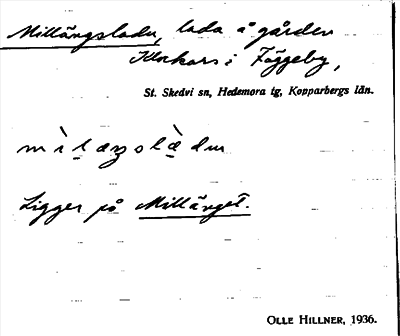 Millängsladu, lada å gården
Klockars i Fäggeby,
St. Skedvi sn, Hedemora tg, Kopparbergs län.
Ligger på Millänget.
OLLE HILLNER, 1936.